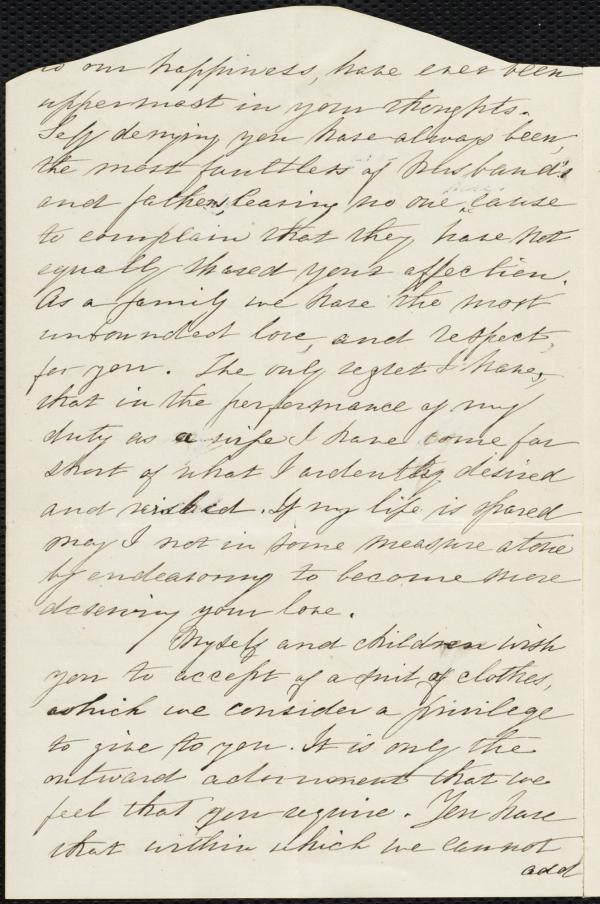 to our happiness, have ever been
uppermost in your thoughts.
Self denying you have always been,
the most faultless of husband's
and fathers, leaving no one cause
to complain that they have not
equally shared your affection.
As a family we have the most
unbounded love, and respect,
for you. The only regret I have,
that in the performance of my
duty as a wife I have come far
short of what I ardently desired
and wished. If my life is spared
may I not in some measure atone
by endeavoring to become more
deserving your love.
Myself and children wish
you to accept of a suit, of clothes,
which we consider a privilege
to give to you. It is only the
outward adornment that we
feel that you require. You have
that within which we cannot
add